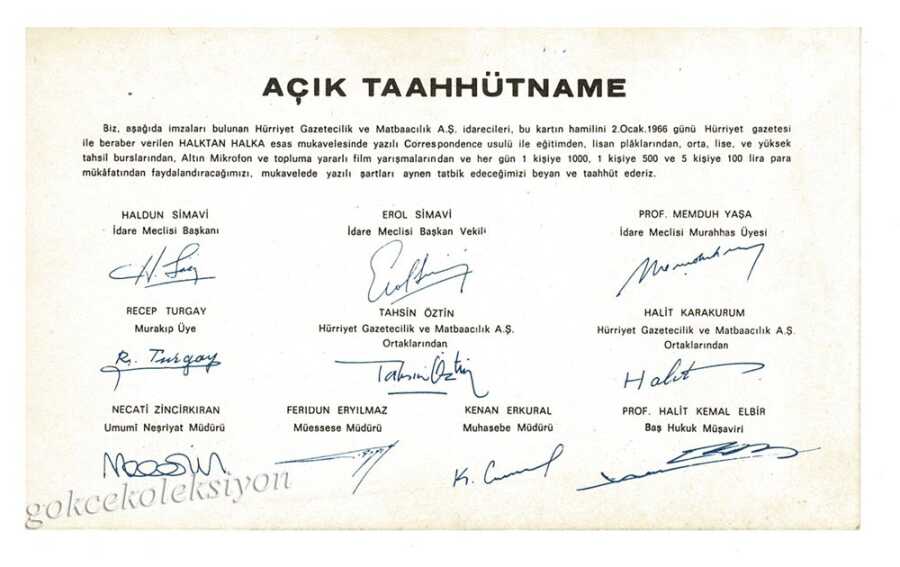 AÇIK TAAHHÜTNAME
Biz, aşağıda imzaları bulunan Hürriyet Gazetecilik ve Matbaacılık A.Ş. idarecileri, bu kartın hamilini 2.Ocak.1966 günü Hürriyet gazetesi
ile beraber verilen HALKTAN HALKA esas mukavelesinde yazılı Correspondence usulü ile eğitimden, lisan plâklarından, orta, lise, ve yüksek
tahsil burslarından, Altın Mikrofon ve topluma yararlı film yarışmalarından ve her gün 1 kişiye 1000, 1 kişiye 500 ve 5 kişiye 100 lira para
mükâfatından faydalandıracağımızı, mukavelede yazılı şartları aynen tatbik edeceğimizi beyan ve taahhüt ederiz.
HALDUN SİMAVİ EROL SİMAVİ PROF. MEMDUH YAŞA
İdare Meclisi Başkanı İdare Meclisi Başkan Vekili İdare Meclisi Murahhas Üyesi
RECEP TURGAY TAHSİN ÖZTİN HALİT KARAKURUM
Murakıp Üye Hürriyet Gazetecilik ve Matbaacılık A.Ş. Hürriyet Gazetecilik ve Matbaacılık A.Ş.
Ortaklarından Ortaklarından
R. Turgay Tahsin Öztin Halit
NECATİ ZİNCİRKIRAN FERIDUN ERYILMAZ KENAN ERKURAL PROF. HALİT KEMAL ELBİR
Umumî Neşriyat Müdürü Müessese Müdürü Muhasebe Müdürü Baş Hukuk Müşaviri
gokcekoleksiyon